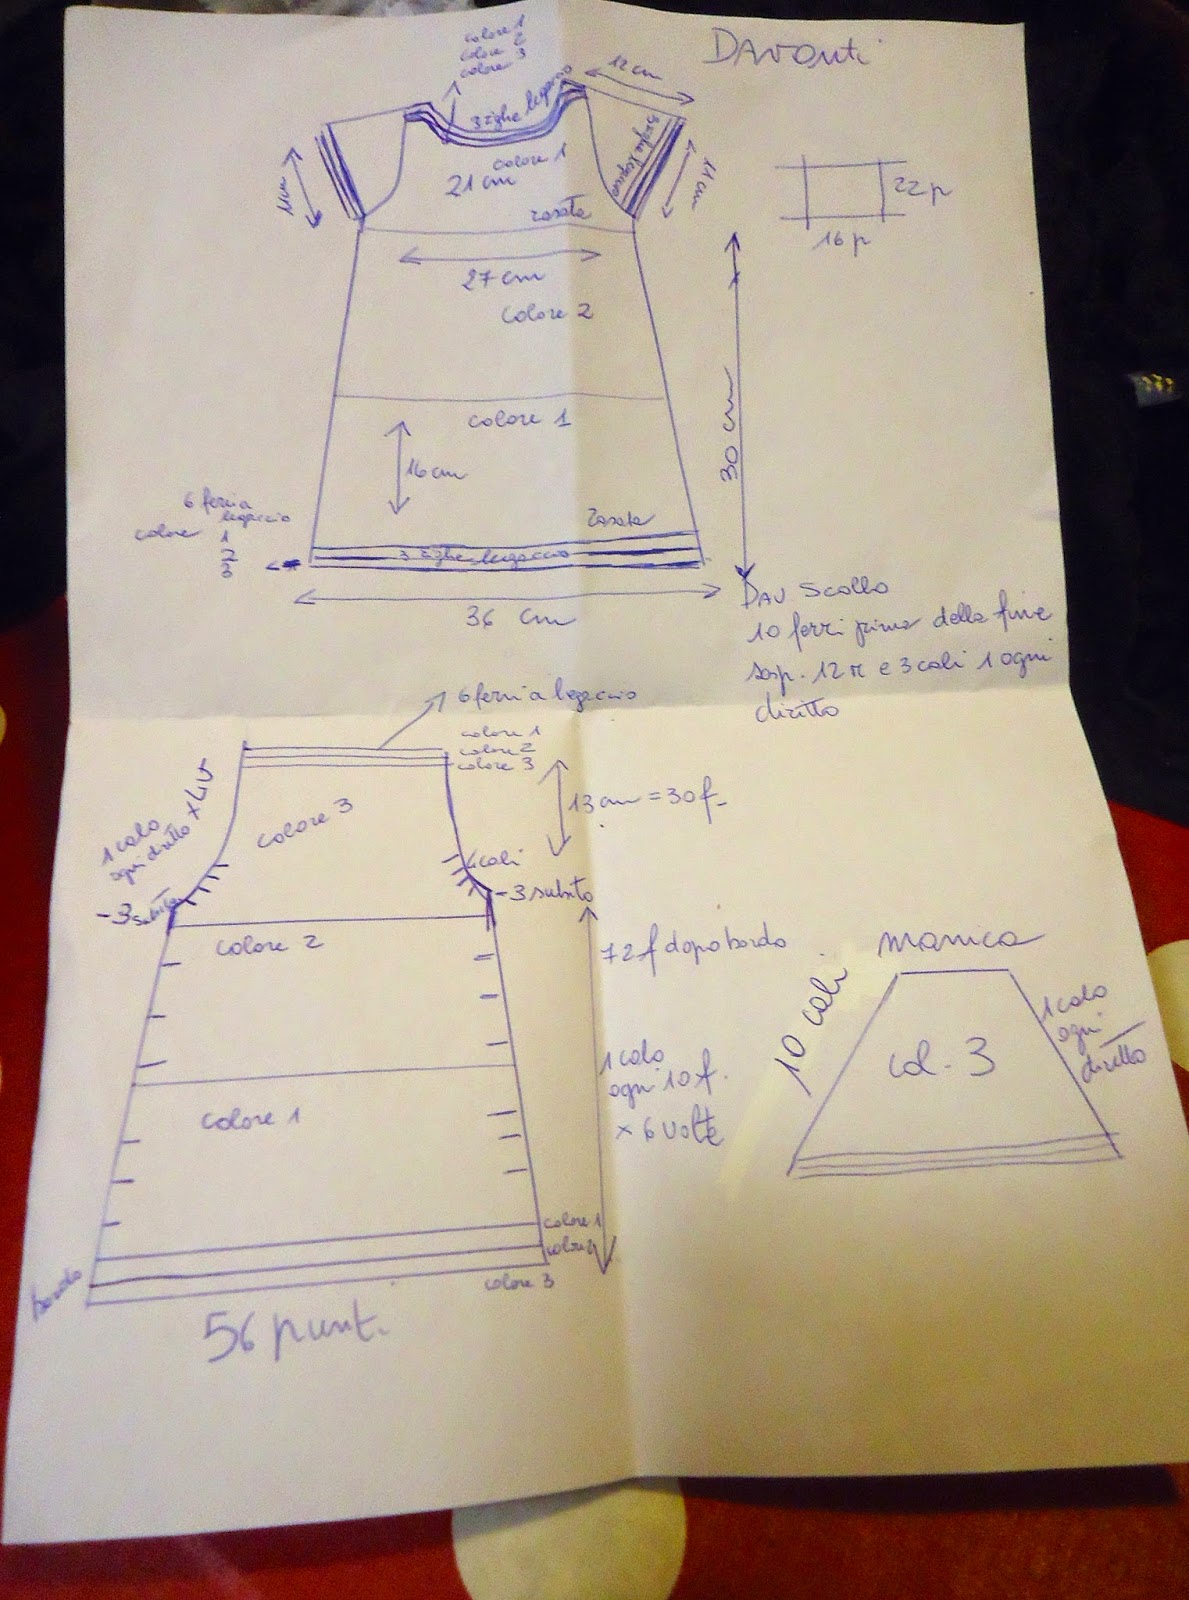 Davanti
colore 1
colore 2
colore 3
12 cm
3 righe legaccio
3 righe legaccio
colore 1
21 cm
11 cm
11 cm
22 p
16 p
rasata
27 cm
colore 2
colore 1
16 cm
30 cm
6 ferri a
legaccio
colore 1
2
3
rasata
3 righe legaccio
36 cm
Dav scollo
10 ferri prima della fine
sosp. 12 m e 3 cali 1 ogni
diritto
6 ferri a legaccio
colore 1
colore 2
colore 3
13 cm = 30 f.
1 calo
ogni diritto x 4v
colore 3
4 cali
-3 subito
-3 subito
colore 2
72 f dopo bordo
manica
10 cali
1 calo
ogni
diritto
col. 3
1 calo
ogni 10 f.
x 6 volte
colore 1
colore 1
colore 2
colore 3
bordo
56 punt.